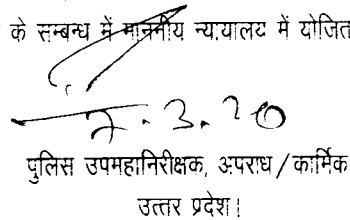 के सम्बन्ध में माननीय न्यायालय में योजित
7.3.20
पुलिस उपमहानिरीक्षक, अपराध/कार्मिक
उत्तर प्रदेश।